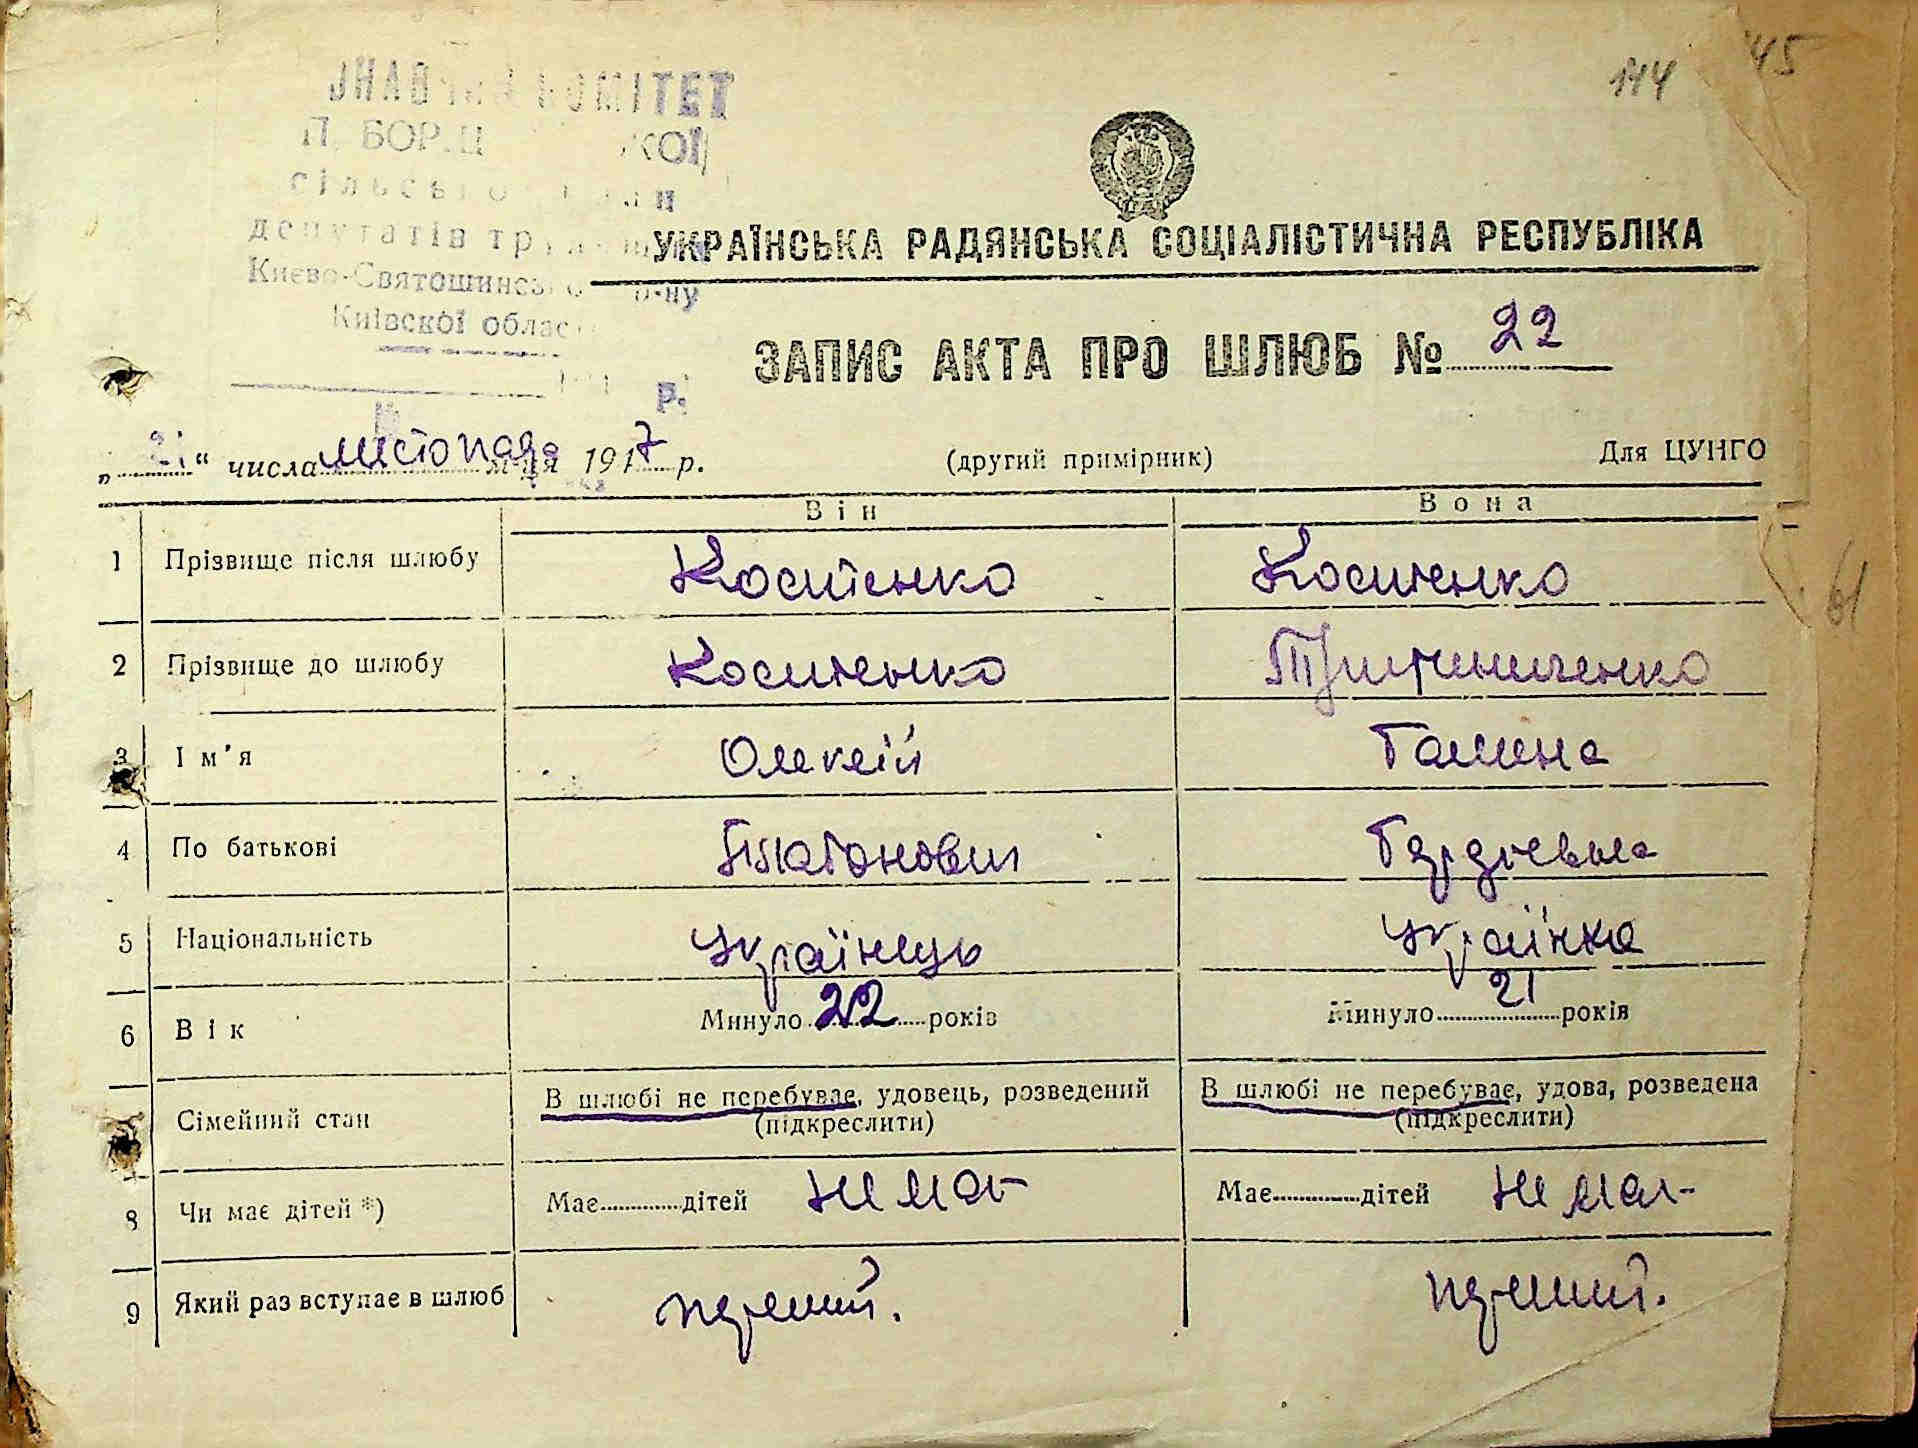 144 45
КОМІТЕТ
П. БОР
депутатів
Києво-Святошинсь р-ну
Київскої облас
р.
УКРАЇНСЬКА РАДЯНСЬКА СОЦІАЛІСТИЧНА РЕСПУБЛІКА
ЗАПИС АКТА ПРО ШЛЮБ № 22
„21“ числа листопада м-ця 1947 р. (другий примірник) Для ЦУНГО
Він Вона
1 Прізвище після шлюбу Коситенко Коситенко
61
2 Прізвище до шлюбу Коситенко
3 Ім'я Олексій Галина
4 По батькові Платонович Гордіевна
5 Національність Українець Українка
6 Вік Минуло 22 років Минуло 21 років
Сімейний стан В шлюбі не перебуває, удовець, розведений (підкреслити) В шлюбі не перебуває, удова, розведена (підкреслити)
8 Чи має дітей *) Має дітей не має Має дітей не має
9 Який раз вступає в шлюб перший. перший.